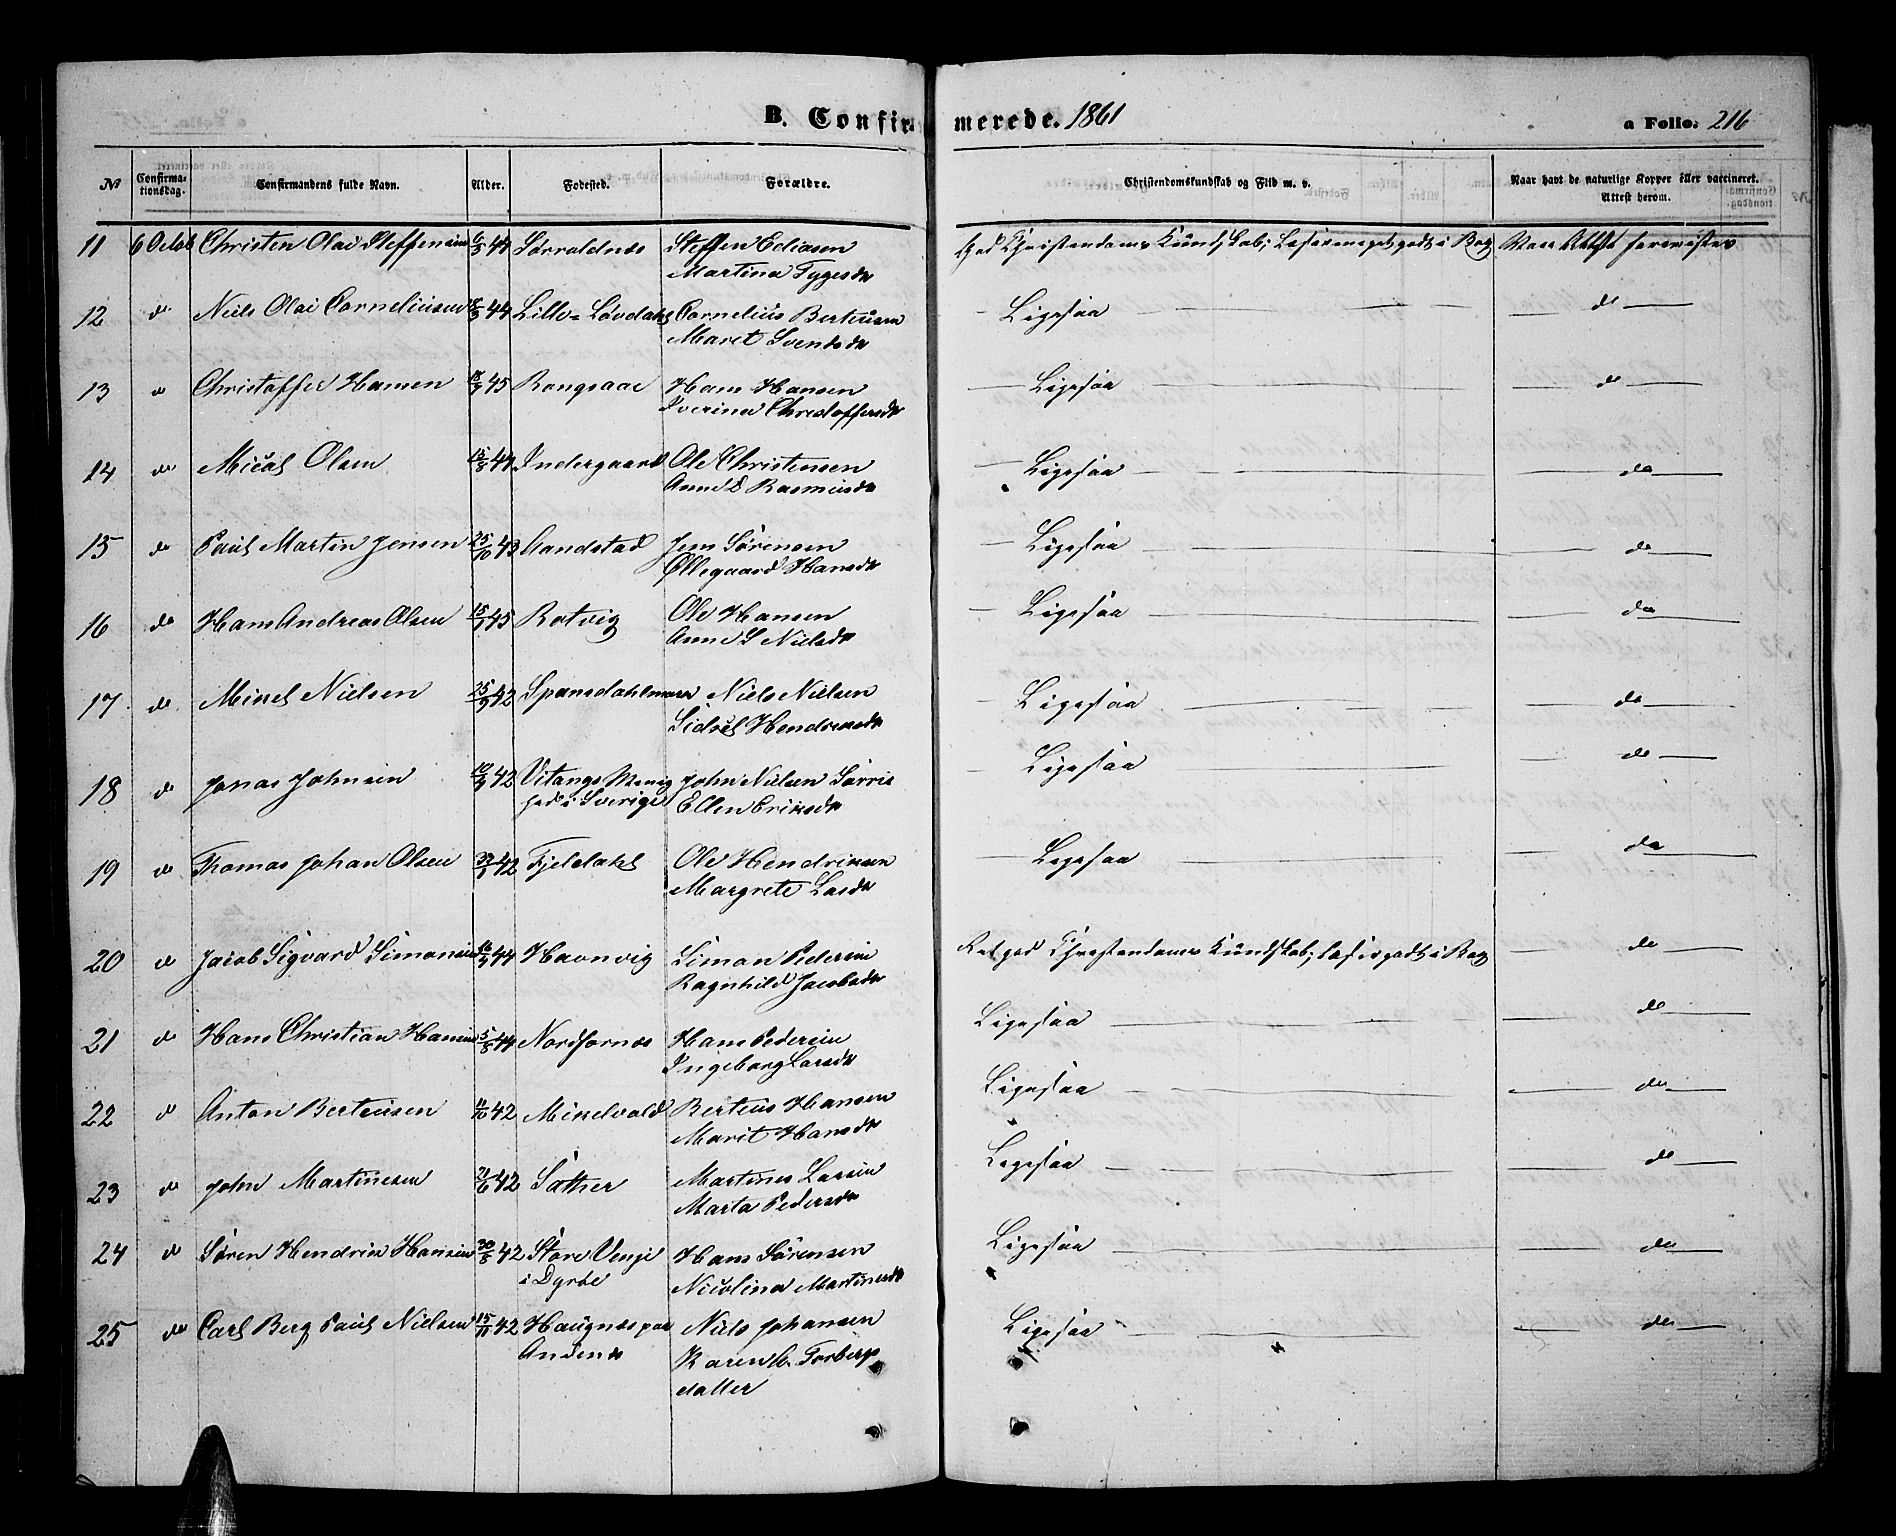 B. Confirmerede. 1861
a Folio. 216
No Confirmationsdag. Confirmandens fulde Navn. Alder. Fødested. Forældre. Christendomskundskab og Flid m. v. Naar havt de naturlige Kopper eller vaccineret. Attest herom.
11 6 Octob Christen Olai Steffensen 6/3 44 Sørroldnes Steffen Ediasen God Christendoms Kundskab; Læser meget godt i Bog Vacc Attest forevistes
Martina Tygesdr
12 do Niels Olai Corneliussen 8/3 44 Lille-Løvdahl Cornelius Berteusen Ligesaa do
Maret Svendsdr
13 do Christoffer Hansen 18/9 45 Rongsaae Hans Hansen Ligesaa do
Iverina Christoffersdr
14 do Micael Olsen 15/8 44 Indergaard Ole Christensen Ligesaa do
Anne D Rasmusdr
15 do Paul Martin Jensen 25/10 43 Aandstad Jens Sørensen Ligesaa do
Ollegaard Hansdr
16 do Hans Andreas Olsen 15/1 45 Rotvig Ole Hansen Ligesaa do
Anne S Nielsdr
17 do Mikel Nielsen 25/9 42 Spansdahlmark Niels Nielsen Ligesaa do
Sidsel Hendriksdr
18 do Jonas Johnsen 10/9 42 Vitangs Menig John Nielsen Sarris Ligesaa do
hed i Sverige Ellen Eriksdr
19 do Thomas Johan Olsen 42 Fjeldahl Ole Hendriksen Ligesaa do
Margrete Lasdr
20 do Jacob Sigvard Simonsen 16/9 44 Havnvig Simon Pedersen Ret god Christendoms Kundskab; læser godt i Bog do
Ragnhild Jacobsdr
21 do Hans Christian Hansen 5/8 44 Nordfornes Hans Pedersen Ligesaa do
Ingeborg Larsdr
22 do Anton Berteusen 11/10 42 Mindvold Berteus Hansen Ligesaa do
Marit Hansdr
23 do John Martinesen 21/6 42 Sæther Martines Larsen Ligesaa do
Marta Pedersdr
24 do Søren Hendrik Hansen 30/8 42 Store Venje Hans Sørensen Ligesaa do
i Dyrøe Nicolina Martinesdr
25 do Carl Berg Paul Nielsen 15/11 42 Haugnes paa Niels Johansen Ligesaa do
Andenes Karen A. Torbergs
datter